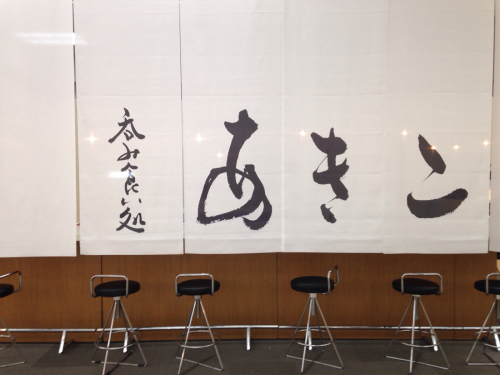 呑み食い処
あきこ